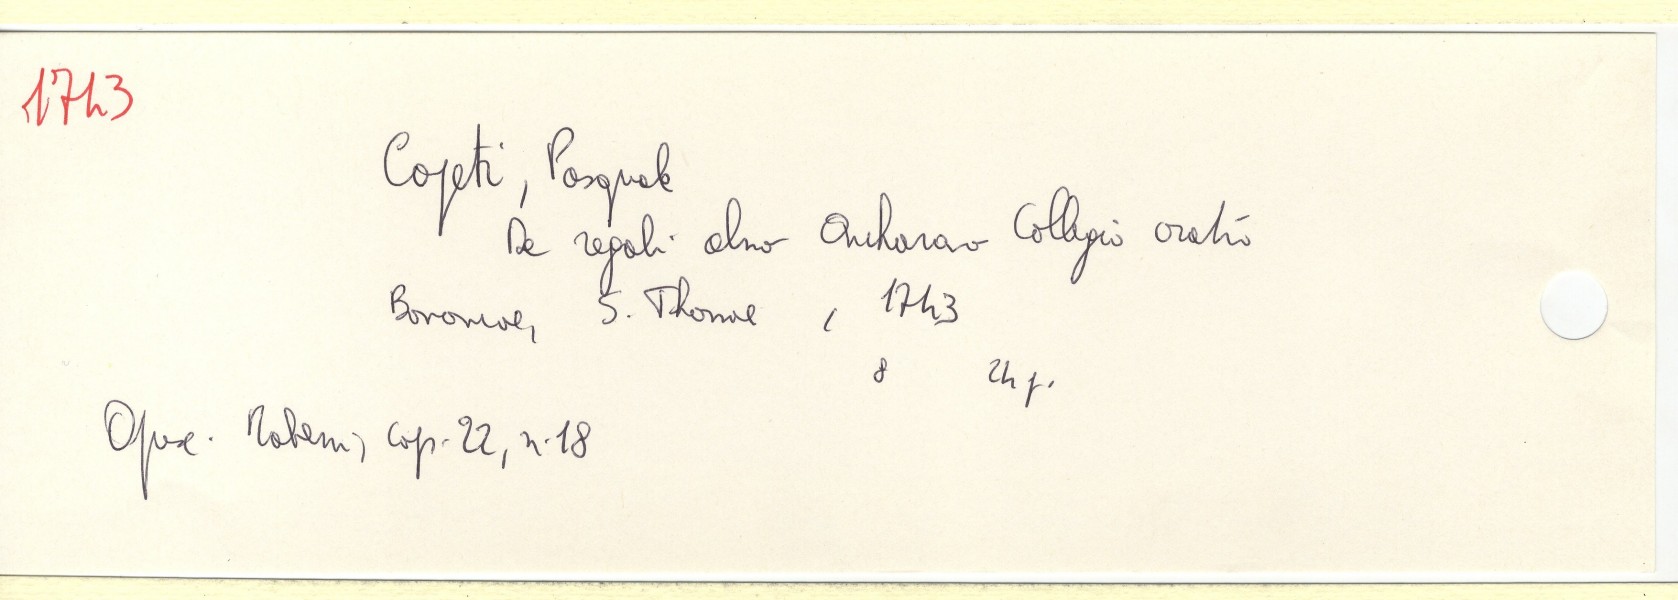 1743
Copeti, Pasquale
De regali almo Ancharano Collegio oratio
Bononiae, S. Thomae, 1743
8 24 p.
Opusc. cap. 22, n. 18